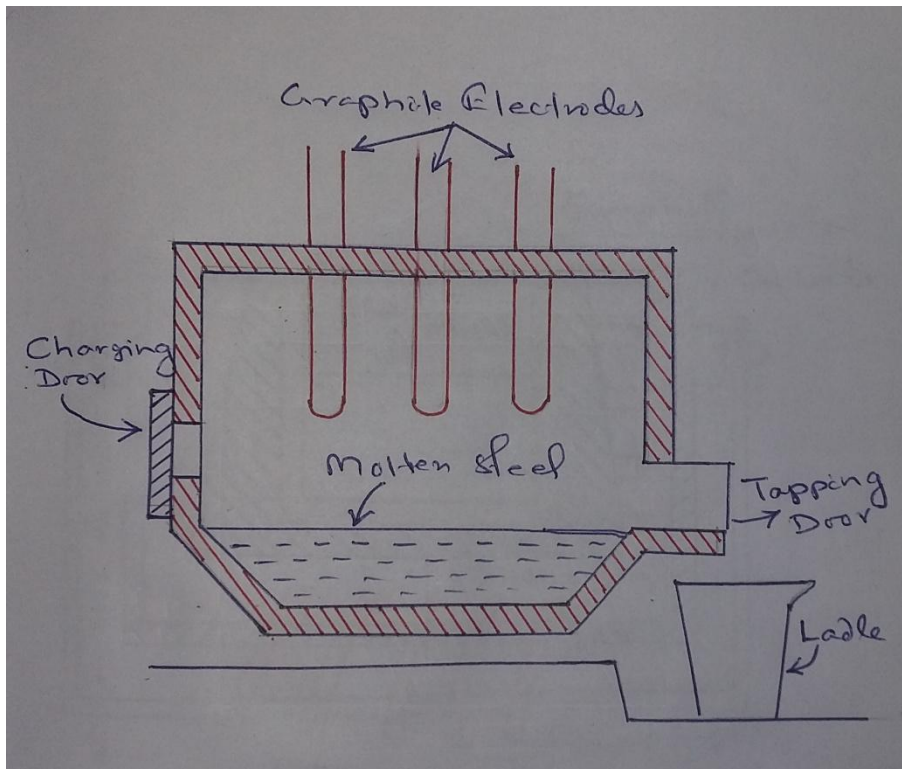 Graphite Electrodes
Charging
Door
Molten Steel
Tapping
Door
Ladle